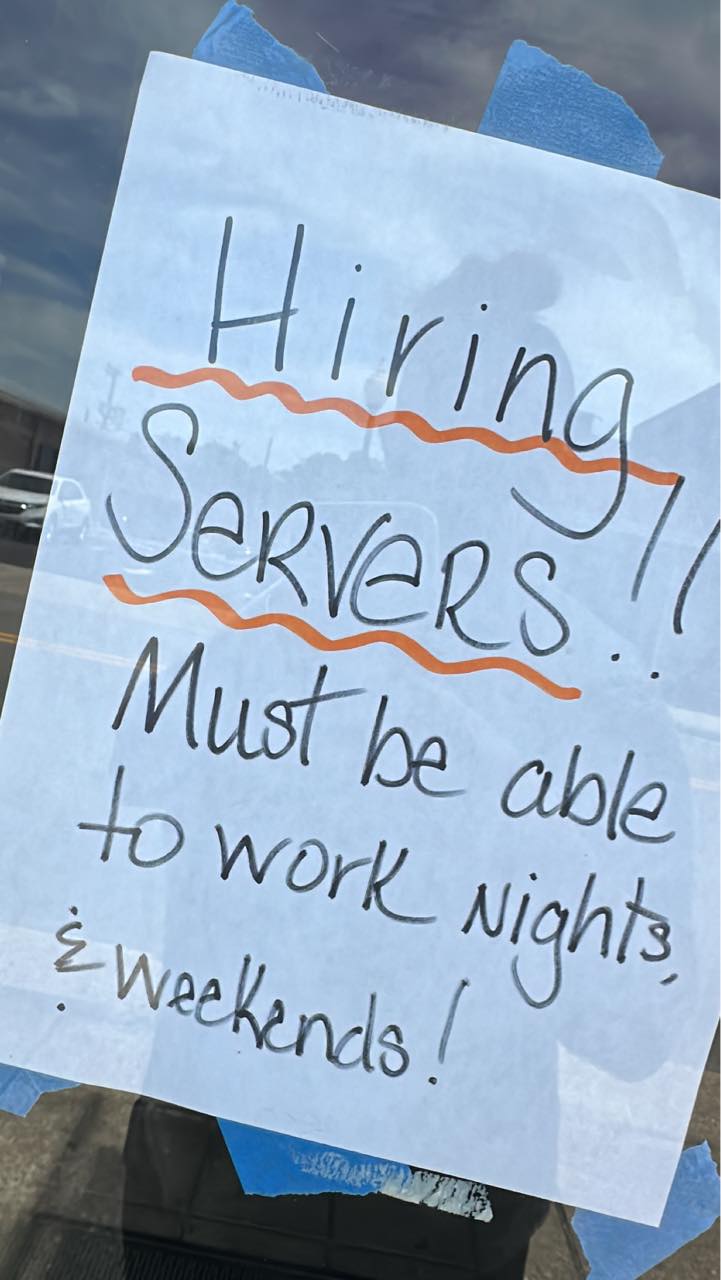 Hiring
SeRVeRS!!
Must be able
to work Nights,
& weekends!